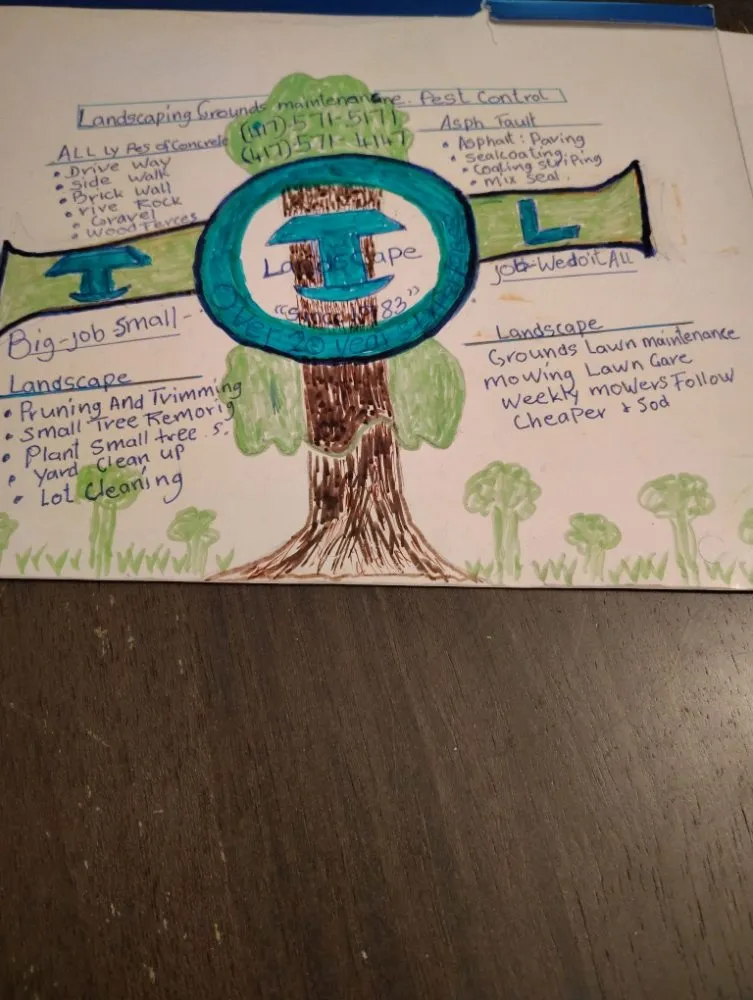 Landscaping Grounds maintenance.. Pest Control
(417)-571-5171
(417)-571-4147
ALL Ly Pes of Concrete
• Drive way
• side walk
• Brick wall
• rive Rock
• Gravel
• Wood Ferces
Asph Tault
• Asphalt: Paving
• sealcoating
• Coating striping
• mix seal.
T
I
L
Landscape
"Since 1983"
Over 20 year's
Big-job small-
job-We do it All
Landscape
• Pruning And Trimming
• Small Tree Remorig
• Plant Small tree.s.
• Yard Clean up
• Lot Cleaning
Landscape
Grounds Lawn maintenance
mowing Lawn Care
weekly mowers Follow
Cheaper & Sod